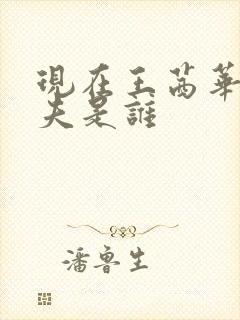 現在王茜華丈
夫是誰
潘魯生